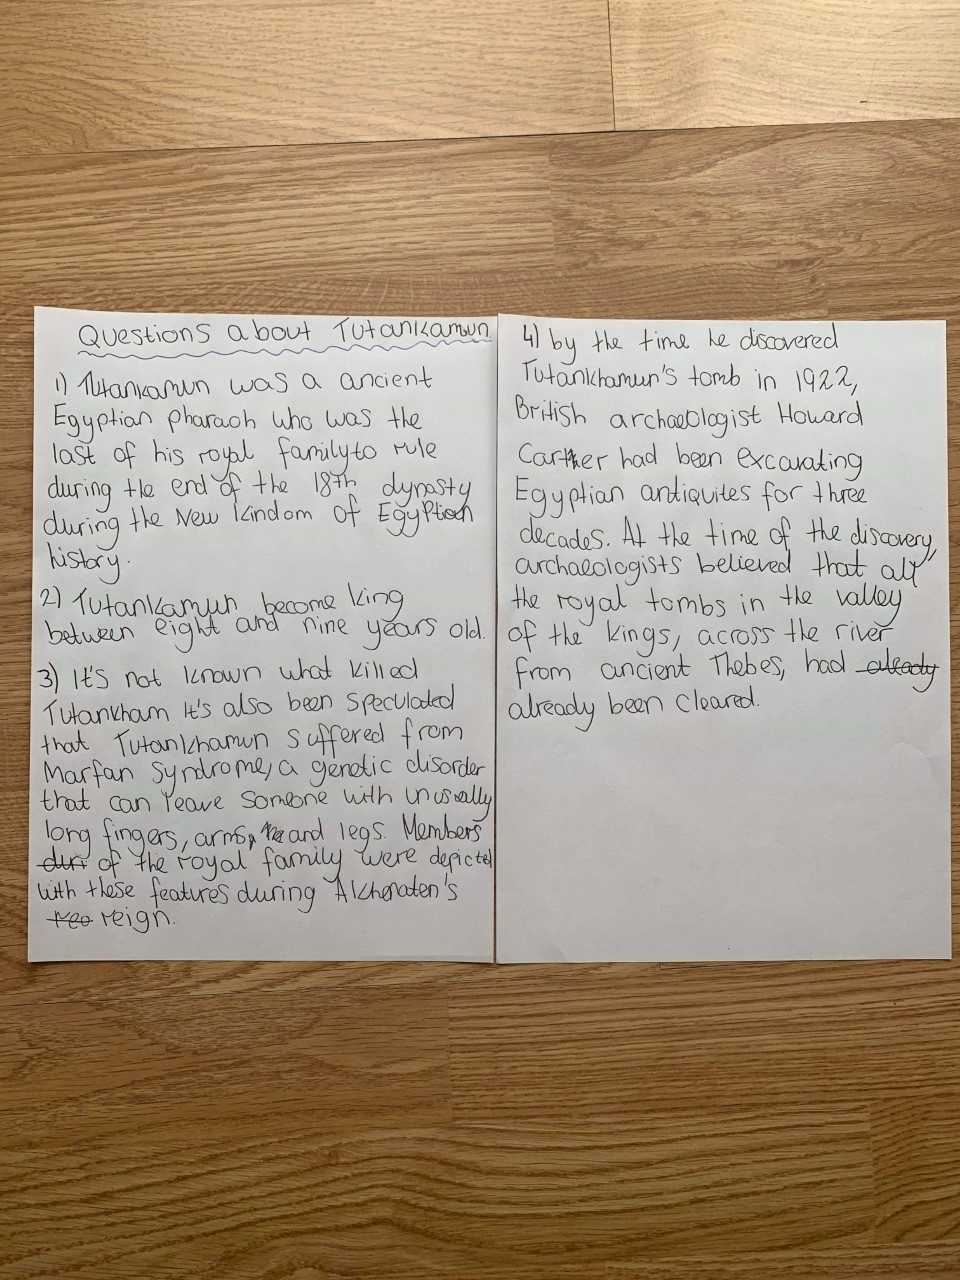 Questions about Tutankamun
1) Tutankamun was a ancient
Egyptian pharaoh who was the
last of his royal family to rule
during the end of the 18th dynasty
during the New Kindom of Egyption
history.
2) Tutankamun become king
between eight and nine years old.
3) It's not known what killed
Tutankham It's also been speculated
that Tutankhamun suffered from
Marfan syndrome, a genetic disorder
that can leave someone with unusually
long fingers, arms, and legs. Members
of the royal family were depicted
with these features during Akhenaten's
reign.
4) by the time he discovered
Tutankhamun's tomb in 1922,
British archaeologist Howard
Carter had been excavating
Egyptian antiquites for three
decades. At the time of the discovery,
archaeologists believed that all
the royal tombs in the valley
of the kings, across the river
from ancient Thebes, had already
already been cleared.